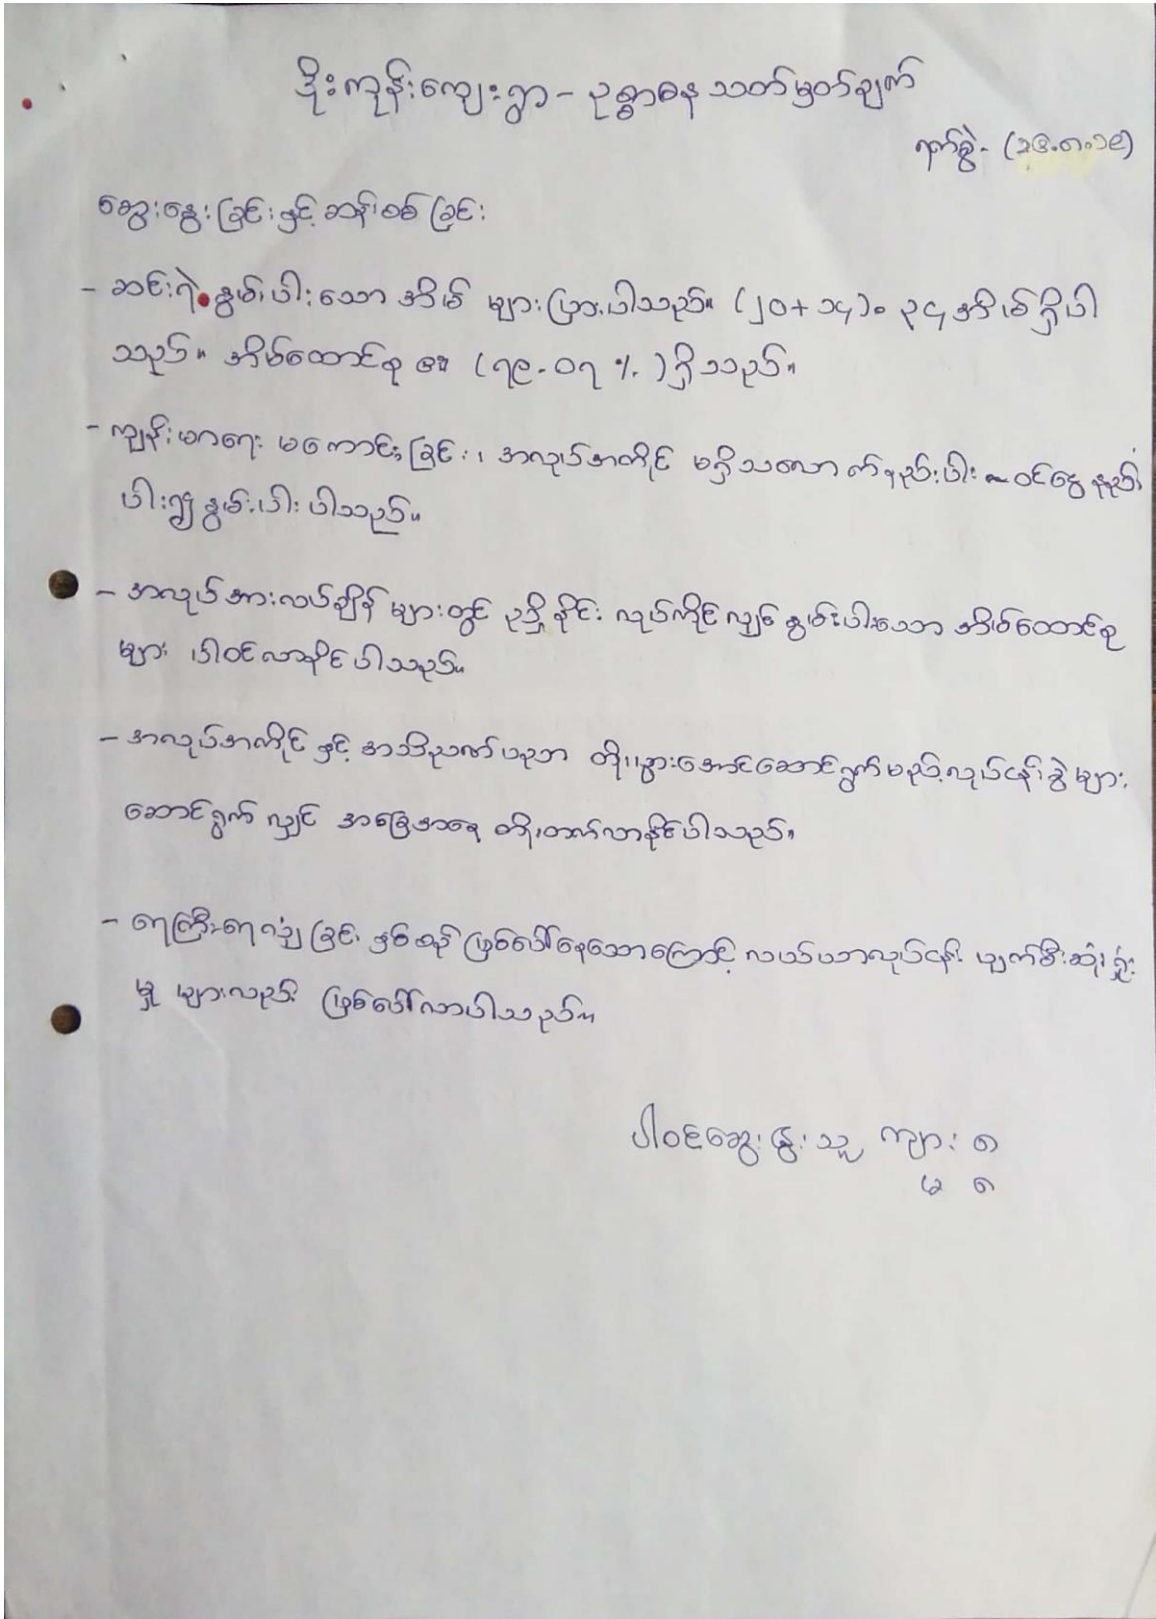 ဒိုးကုန်းကျေးရွာ - ဥစ္စာဓန သတ်မှတ်ချက်
ရက်စွဲ- (၁၆.၈.၁၉)
ဆွေးနွေးခြင်းနှင့် ဆန်းစစ်ခြင်း
- ဆင်းရဲ နွမ်းပါးသော အိမ် များပြားပါသည်။ (၂၀+၁၄)= ၃၄ အိမ်ရှိပါ
သည်။ အိမ်ထောင်စု ၏ (၇၉.၀၇ %)ရှိသည်။
- ကျန်းမာရေး မကောင်းခြင်း၊ အလုပ်အကိုင် မရှိသလောက်နည်းပါး ဝင်ငွေနည်း
ပါး၍ နွမ်းပါးပါသည်။
- အလုပ်အားလပ်ချိန် များတွင် ဥမှိုင်း လုပ်ကိုင်လျှင် နွမ်းပါးသော အိမ်ထောင်စု
များ ပါဝင်လာနိုင်ပါသည်။
- အလုပ်အကိုင် နှင့် အသိဉာဏ်ပညာ တိုးပွားအောင်ဆောင်ရွက်မည့်လုပ်ငန်းခွဲများ
ဆောင်ရွက် လျှင် အခြေအနေ တိုးတက်လာနိုင်ပါသည်။
- ရေကြီးရေလျှံခြင်း နှစ်စဉ် ဖြစ်ပေါ်နေသောကြောင့် လယ်ယာလုပ်ငန်း ပျက်စီးဆုံးရှုံး
မှု များလည်း ဖြစ်ပေါ်လာပါသည်။
ပါဝင်ဆွေးနွေးသူ ကျား ၈
မ ၈